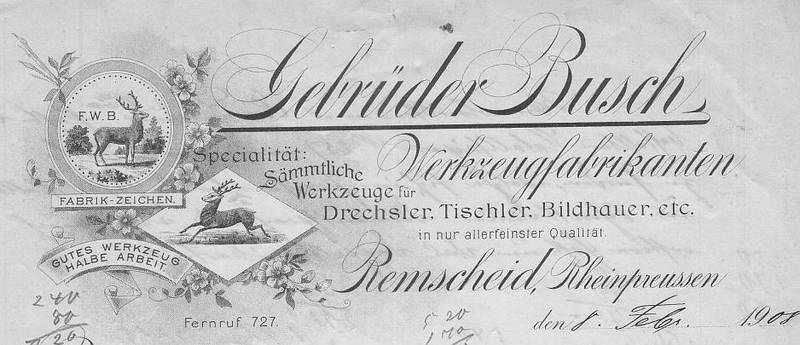 Gebrüder Busch
F.W.B.
Specialität:
Werkzeugfabrikanten
Sämmtliche
Werkzeuge für
FABRIK-ZEICHEN.
Drechsler, Tischler, Bildhauer, etc.
in nur allerfeinster Qualität.
GUTES WERKZEUG
HALBE ARBEIT.
Remscheid, Rheinpreussen
240
80
Fernruf 727.
5 20
den 8. Febr. 1908